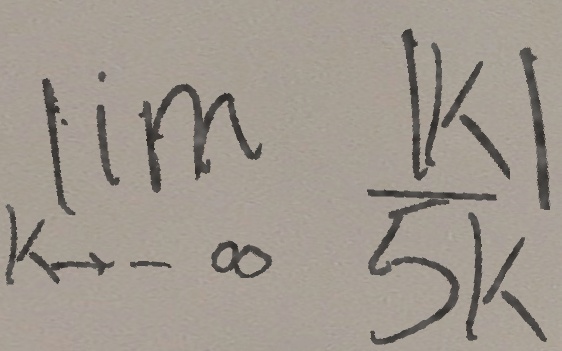 lim |K|
K→-∞ 5K